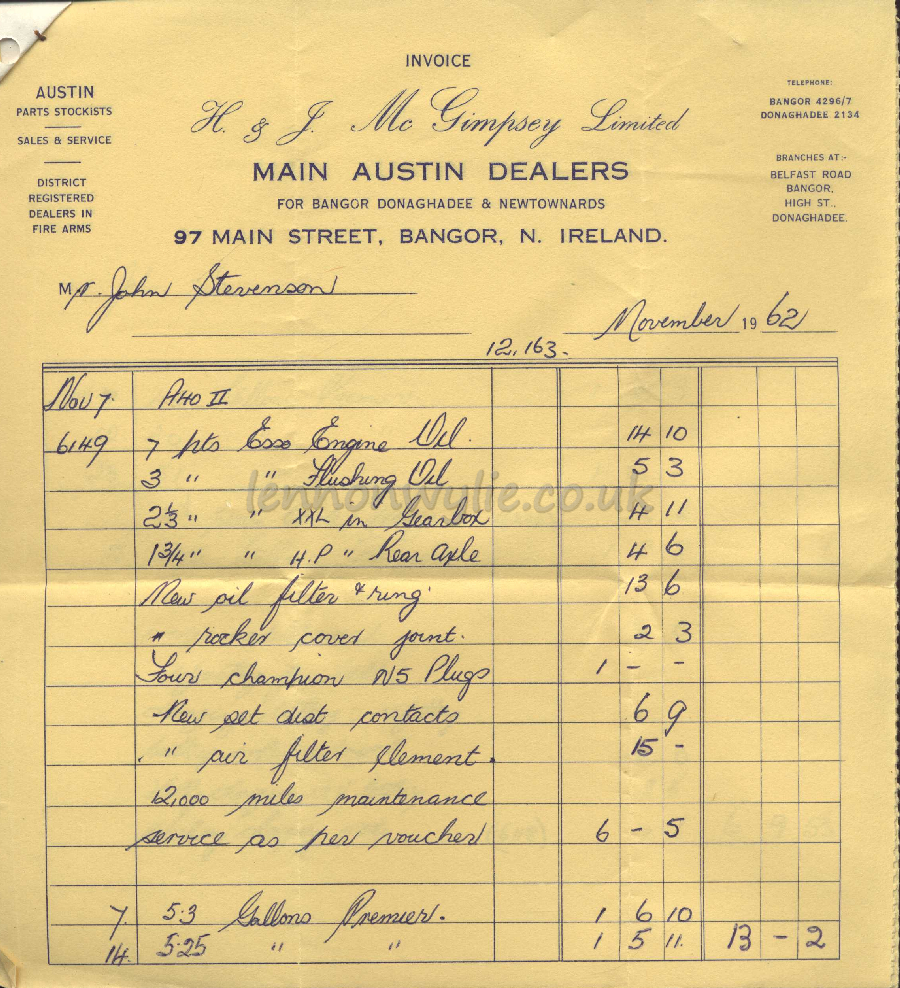 INVOICE
AUSTIN
PARTS STOCKISTS
SALES & SERVICE
DISTRICT
REGISTERED
DEALERS IN
FIRE ARMS
H. & J. Mc Gimpsey Limited
MAIN AUSTIN DEALERS
FOR BANGOR DONAGHADEE & NEWTOWNARDS
97 MAIN STREET, BANGOR, N. IRELAND.
TELEPHONE:
BANGOR 4296/7
DONAGHADEE 2134
BRANCHES AT:-
BELFAST ROAD
BANGOR,
HIGH ST.,
DONAGHADEE.
Mr. John Stevenson
November 1962
12,163.
Nov 7. A40 II
6149 7 pts Esso Engine Oil. 14 10
3 " " Flushing Oil 5 3
lennonwylie.co.uk
2⅓ " " XXL in Gearbox 4 11
1 3/4 " " H.P " Rear Axle 4 6
New oil filter & ring. 13 6
" rocker cover joint. 2 3
Four champion N5 Plugs 1 - -
New set dist contacts 6 9
" air filter Element. 15 -
12,000 miles maintenance
service as per voucher 6 - 5
7. 5.3 Gallons Premier. 1 6 10
14. 5.25 " " 1 5 11. 13 - 2